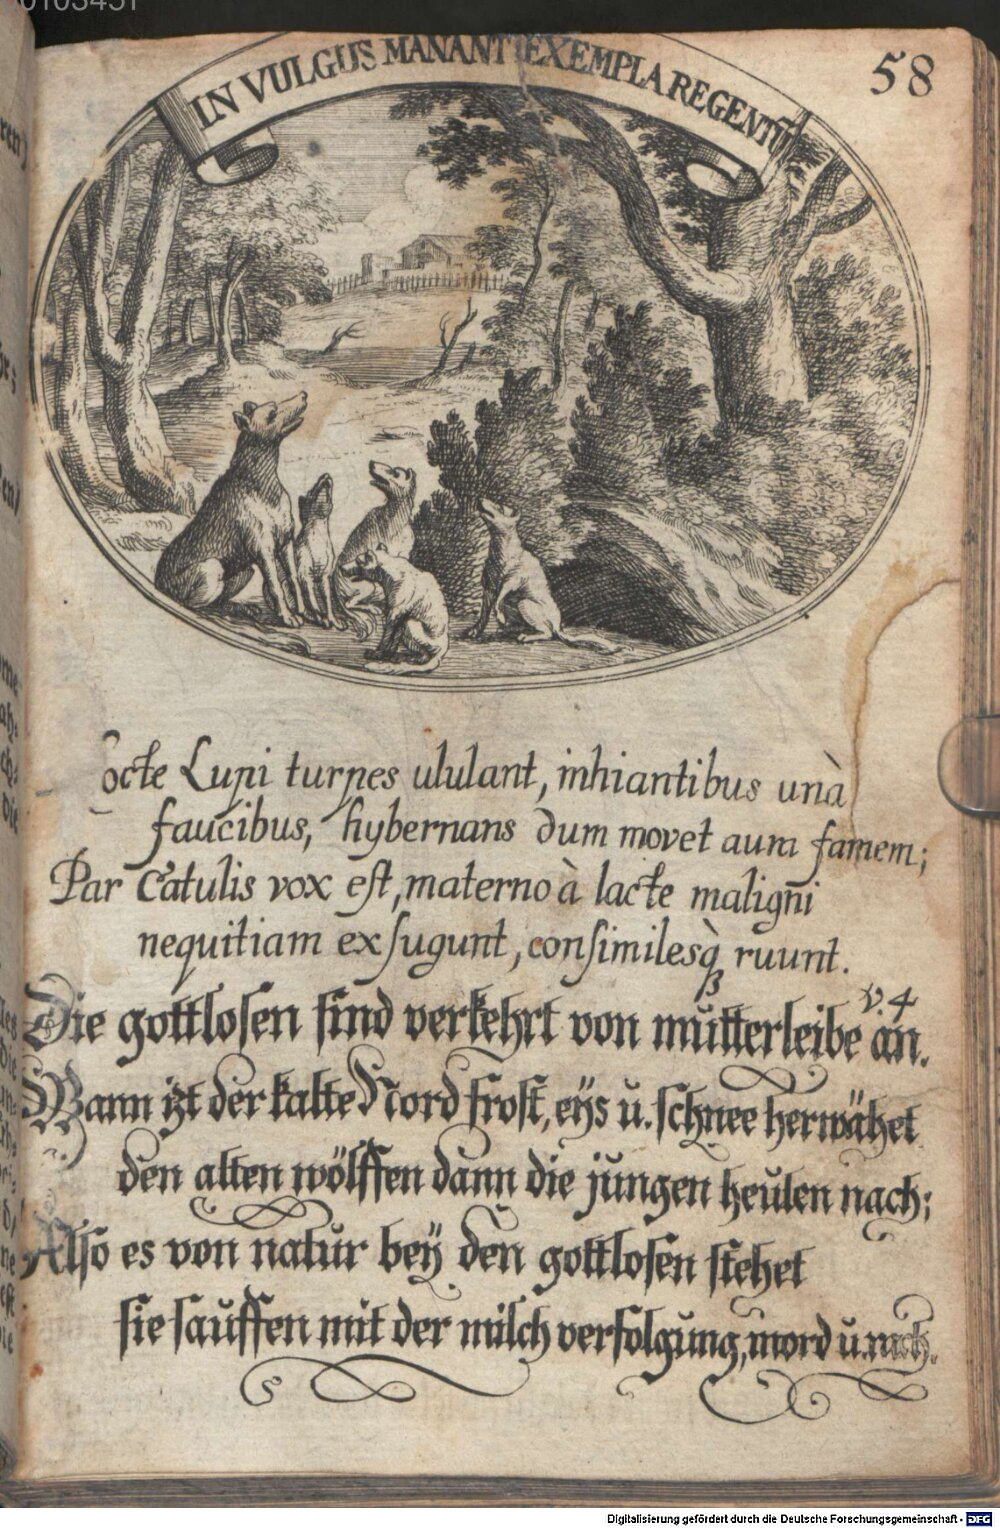 58
IN VULGUS MANANT EXEMPLA REGENTŪ
octe Lupi turpes ululant, inhiantibus unà
faucibus, hybernans dum movet aura famem;
Par Catulis vox eſt, materno à lacte maligni
nequitiam exſugunt, conſimilesq́ꝫ ruunt.
v. 4
Die gottloſen ſind verkehrt von mutterleibe an.
Wann izt der kalte Nord froſt, eÿs ŭ. ſchnee herwähet
den alten wölffen dann die jŭngen heŭlen nach;
Alſo es von natŭr beÿ den gottloſen ſtehet
ſie ſaŭffen mit der milch verfolgŭng, mord ŭ. rach.
Digitalisierung gefördert durch die Deutsche Forschungsgemeinschaft - DFG